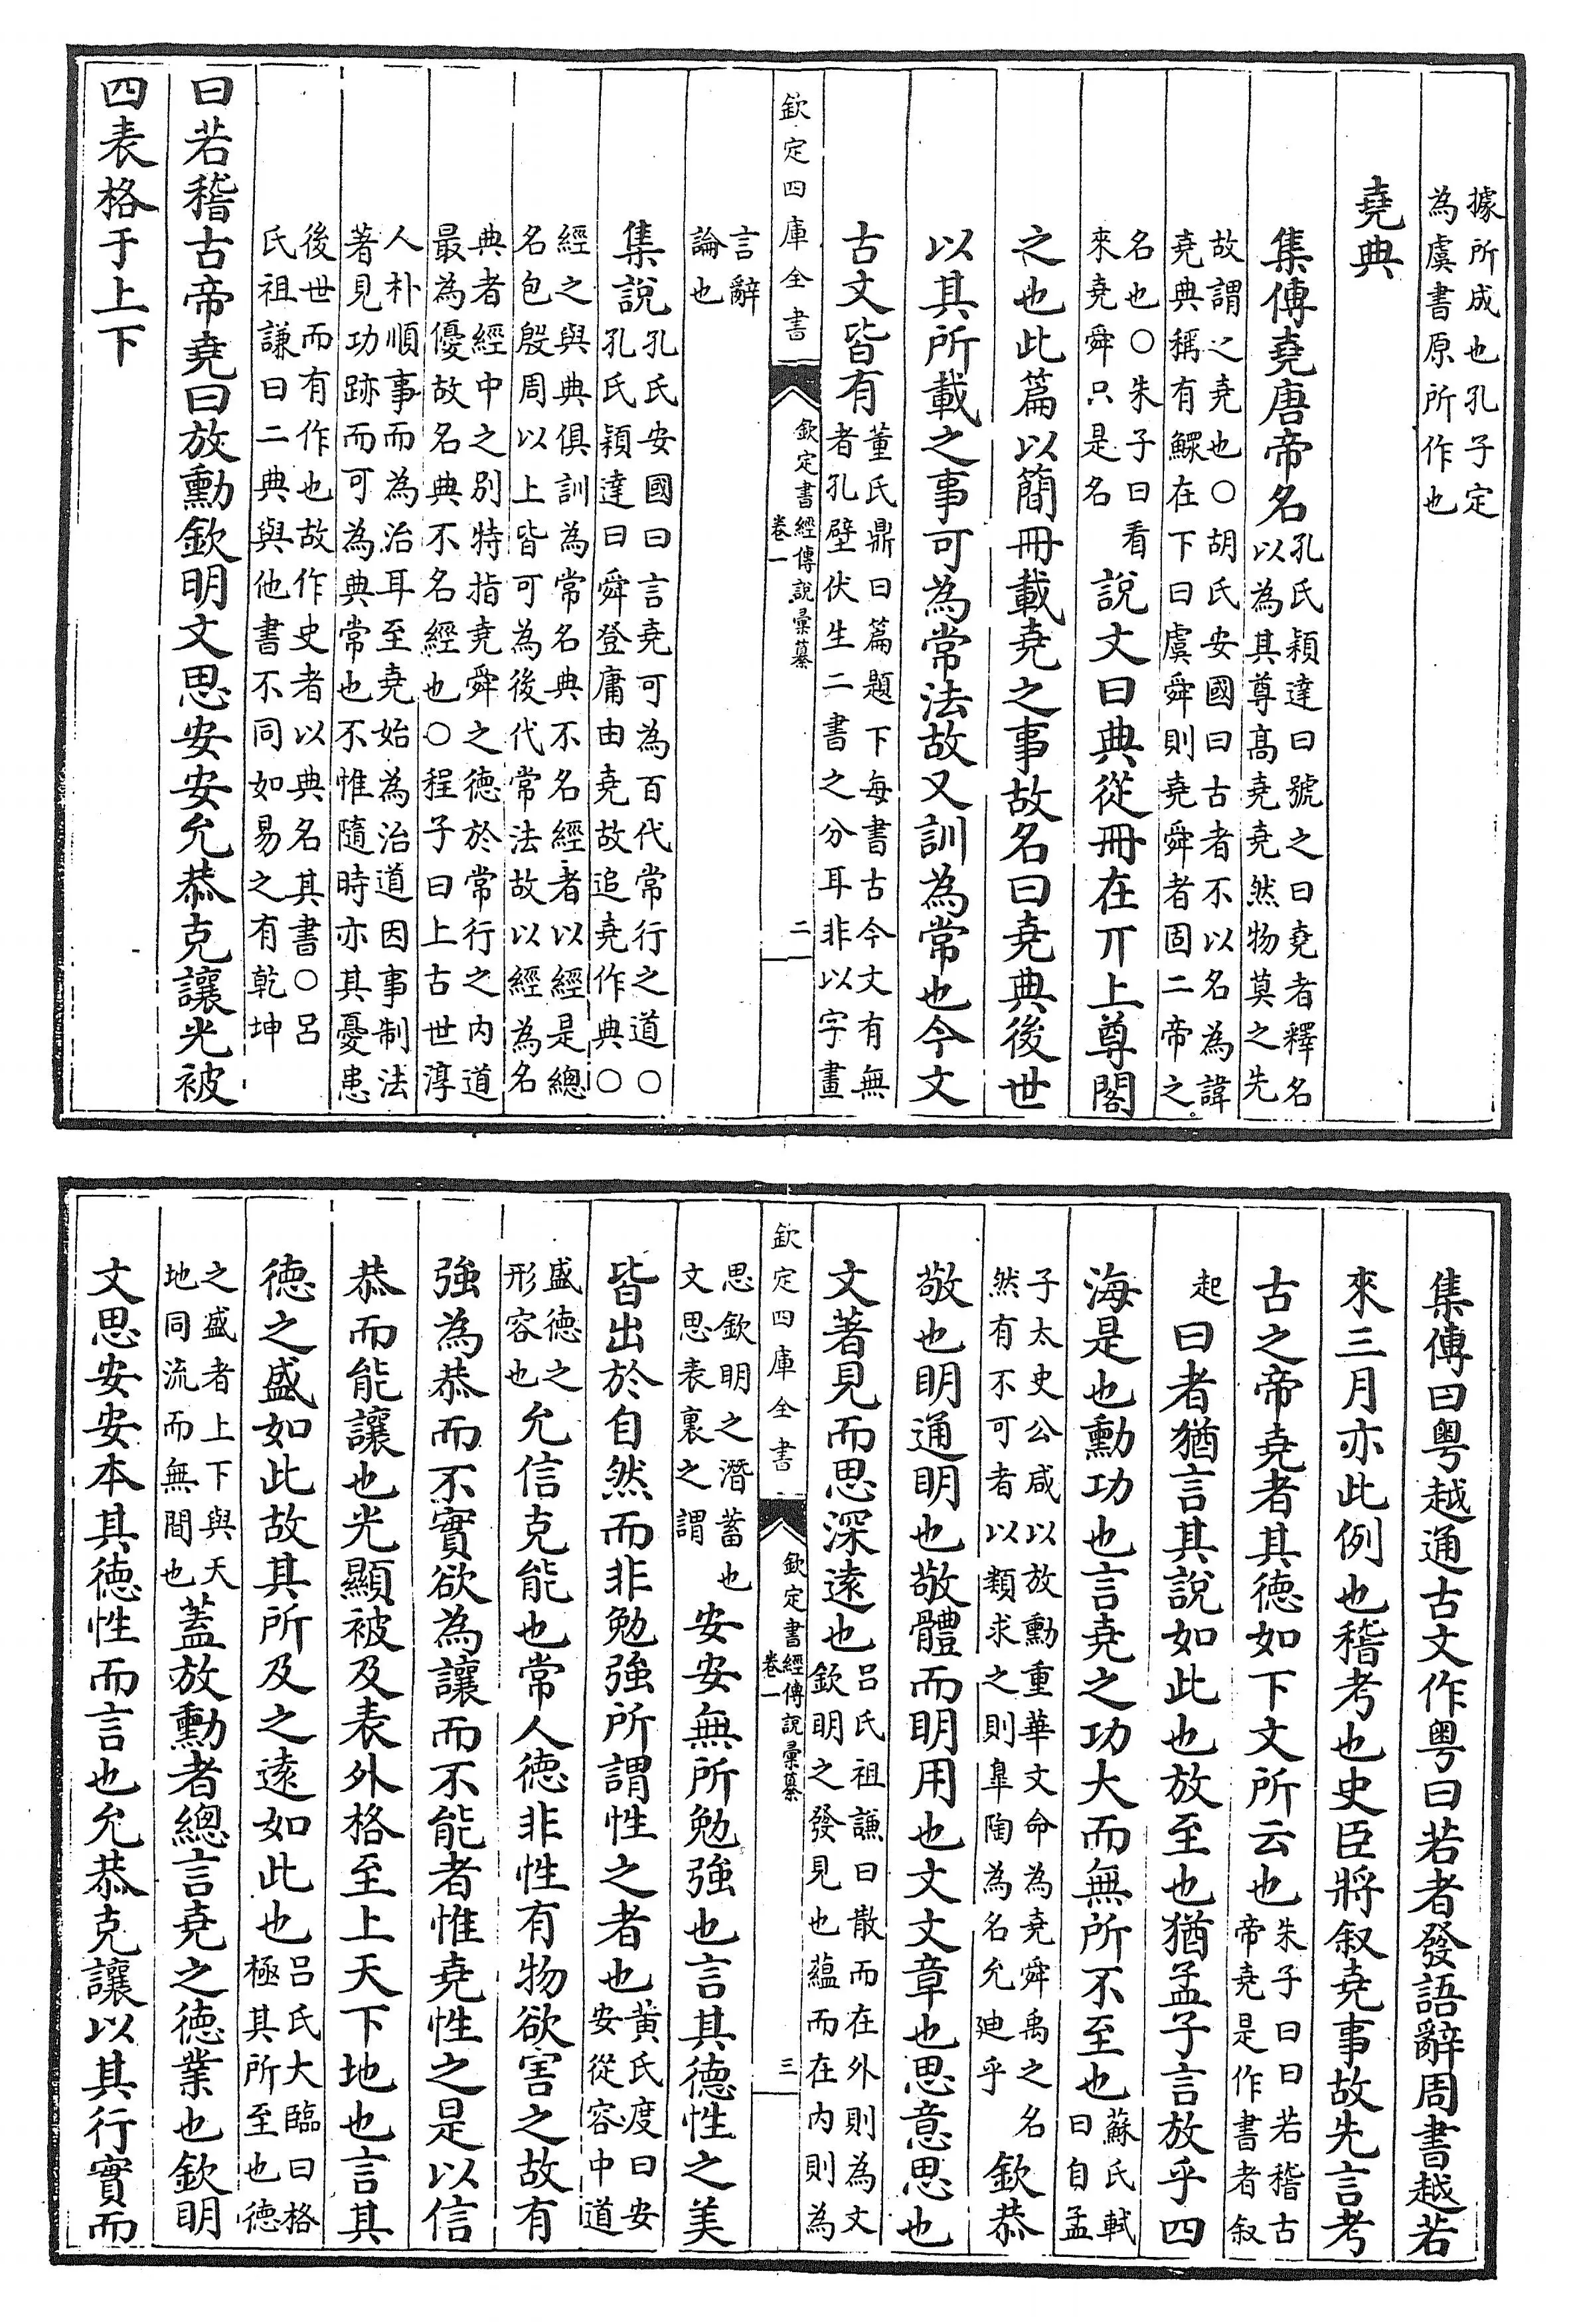 據所成也孔子定
為虞書原所作也
堯典
集傳堯唐帝名孔氏穎達曰號之曰堯者釋名
以為其尊高堯堯然物莫之先
故謂之堯也○胡氏安國曰古者不以名為諱
堯典稱有鰥在下曰虞舜則堯舜者固二帝之
名也○朱子曰看
來堯舜只是名說文曰典從冊在丌上尊閣
之也此篇以簡冊載堯之事故名曰堯典後世
以其所載之事可為常法故又訓為常也今文
古文皆有董氏鼎曰篇題下每書古今文有無
者孔壁伏生二書之分耳非以字畫
欽定四庫全書
欽定書經傳說彙纂
卷一
二
言辭
論也
集說孔氏安國曰言堯可為百代常行之道○
孔氏穎達曰舜登庸由堯故追堯作典○
經之與典俱訓為常名典不名經者以經是總
名包殷周以上皆可為後代常法故以經為名
典者經中之別特指堯舜之德於常行之內道
最為優故名典不名經也○程子曰上古世淳
人朴順事而為治耳至堯始為治道因事制法
著見功跡而可為典常也不惟隨時亦其憂患
後世而有作也故作史者以典名其書○呂
氏祖謙曰二典與他書不同如易之有乾坤
曰若稽古帝堯曰放勳欽明文思安安允恭克讓光被
四表格于上下
集傳曰粤越通古文作粤曰若者發語辭周書越若
來三月亦此例也稽考也史臣將叙堯事故先言考
古之帝堯者其德如下文所云也朱子曰曰若稽古
帝堯是作書者叙
起曰者猶言其說如此也放至也猶孟子言放乎四
海是也勳功也言堯之功大而無所不至也蘇氏軾
曰自孟
子太史公咸以放勳重華文命為堯舜禹之名
然有不可者以類求之則臯陶為名允廸乎欽恭
敬也明通明也敬體而明用也文文章也思意思也
文著見而思深遠也呂氏祖謙曰散而在外則為文
欽明之發見也蘊而在內則為
欽定四庫全書
欽定書經傳說彙纂
卷一
三
思欽明之潛蓄也
文思表裏之謂安安無所勉強也言其德性之美
皆出於自然而非勉強所謂性之者也黃氏度曰安
安從容中道
盛德之
形容也允信克能也常人德非性有物欲害之故有
強為恭而不實欲為讓而不能者惟堯性之是以信
恭而能讓也光顯被及表外格至上天下地也言其
德之盛如此故其所及之遠如此也呂氏大臨曰格
極其所至也德
之盛者上下與天
地同流而無間也蓋放勳者總言堯之德業也欽明
文思安安本其德性而言也允恭克讓以其行實而